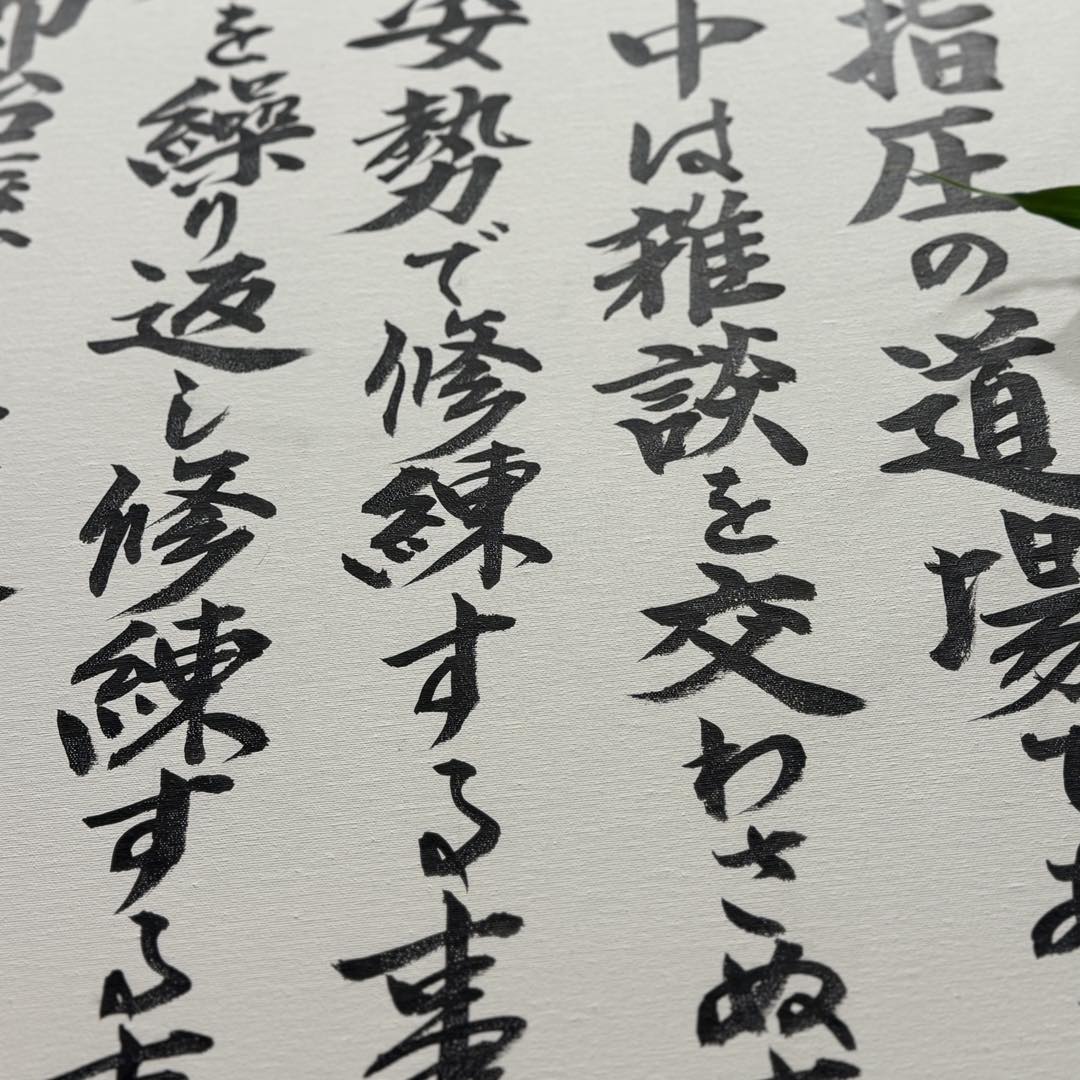 指圧の道場で
中は雑談を交わさぬ
姿勢で修練する事
を繰り返し修練する